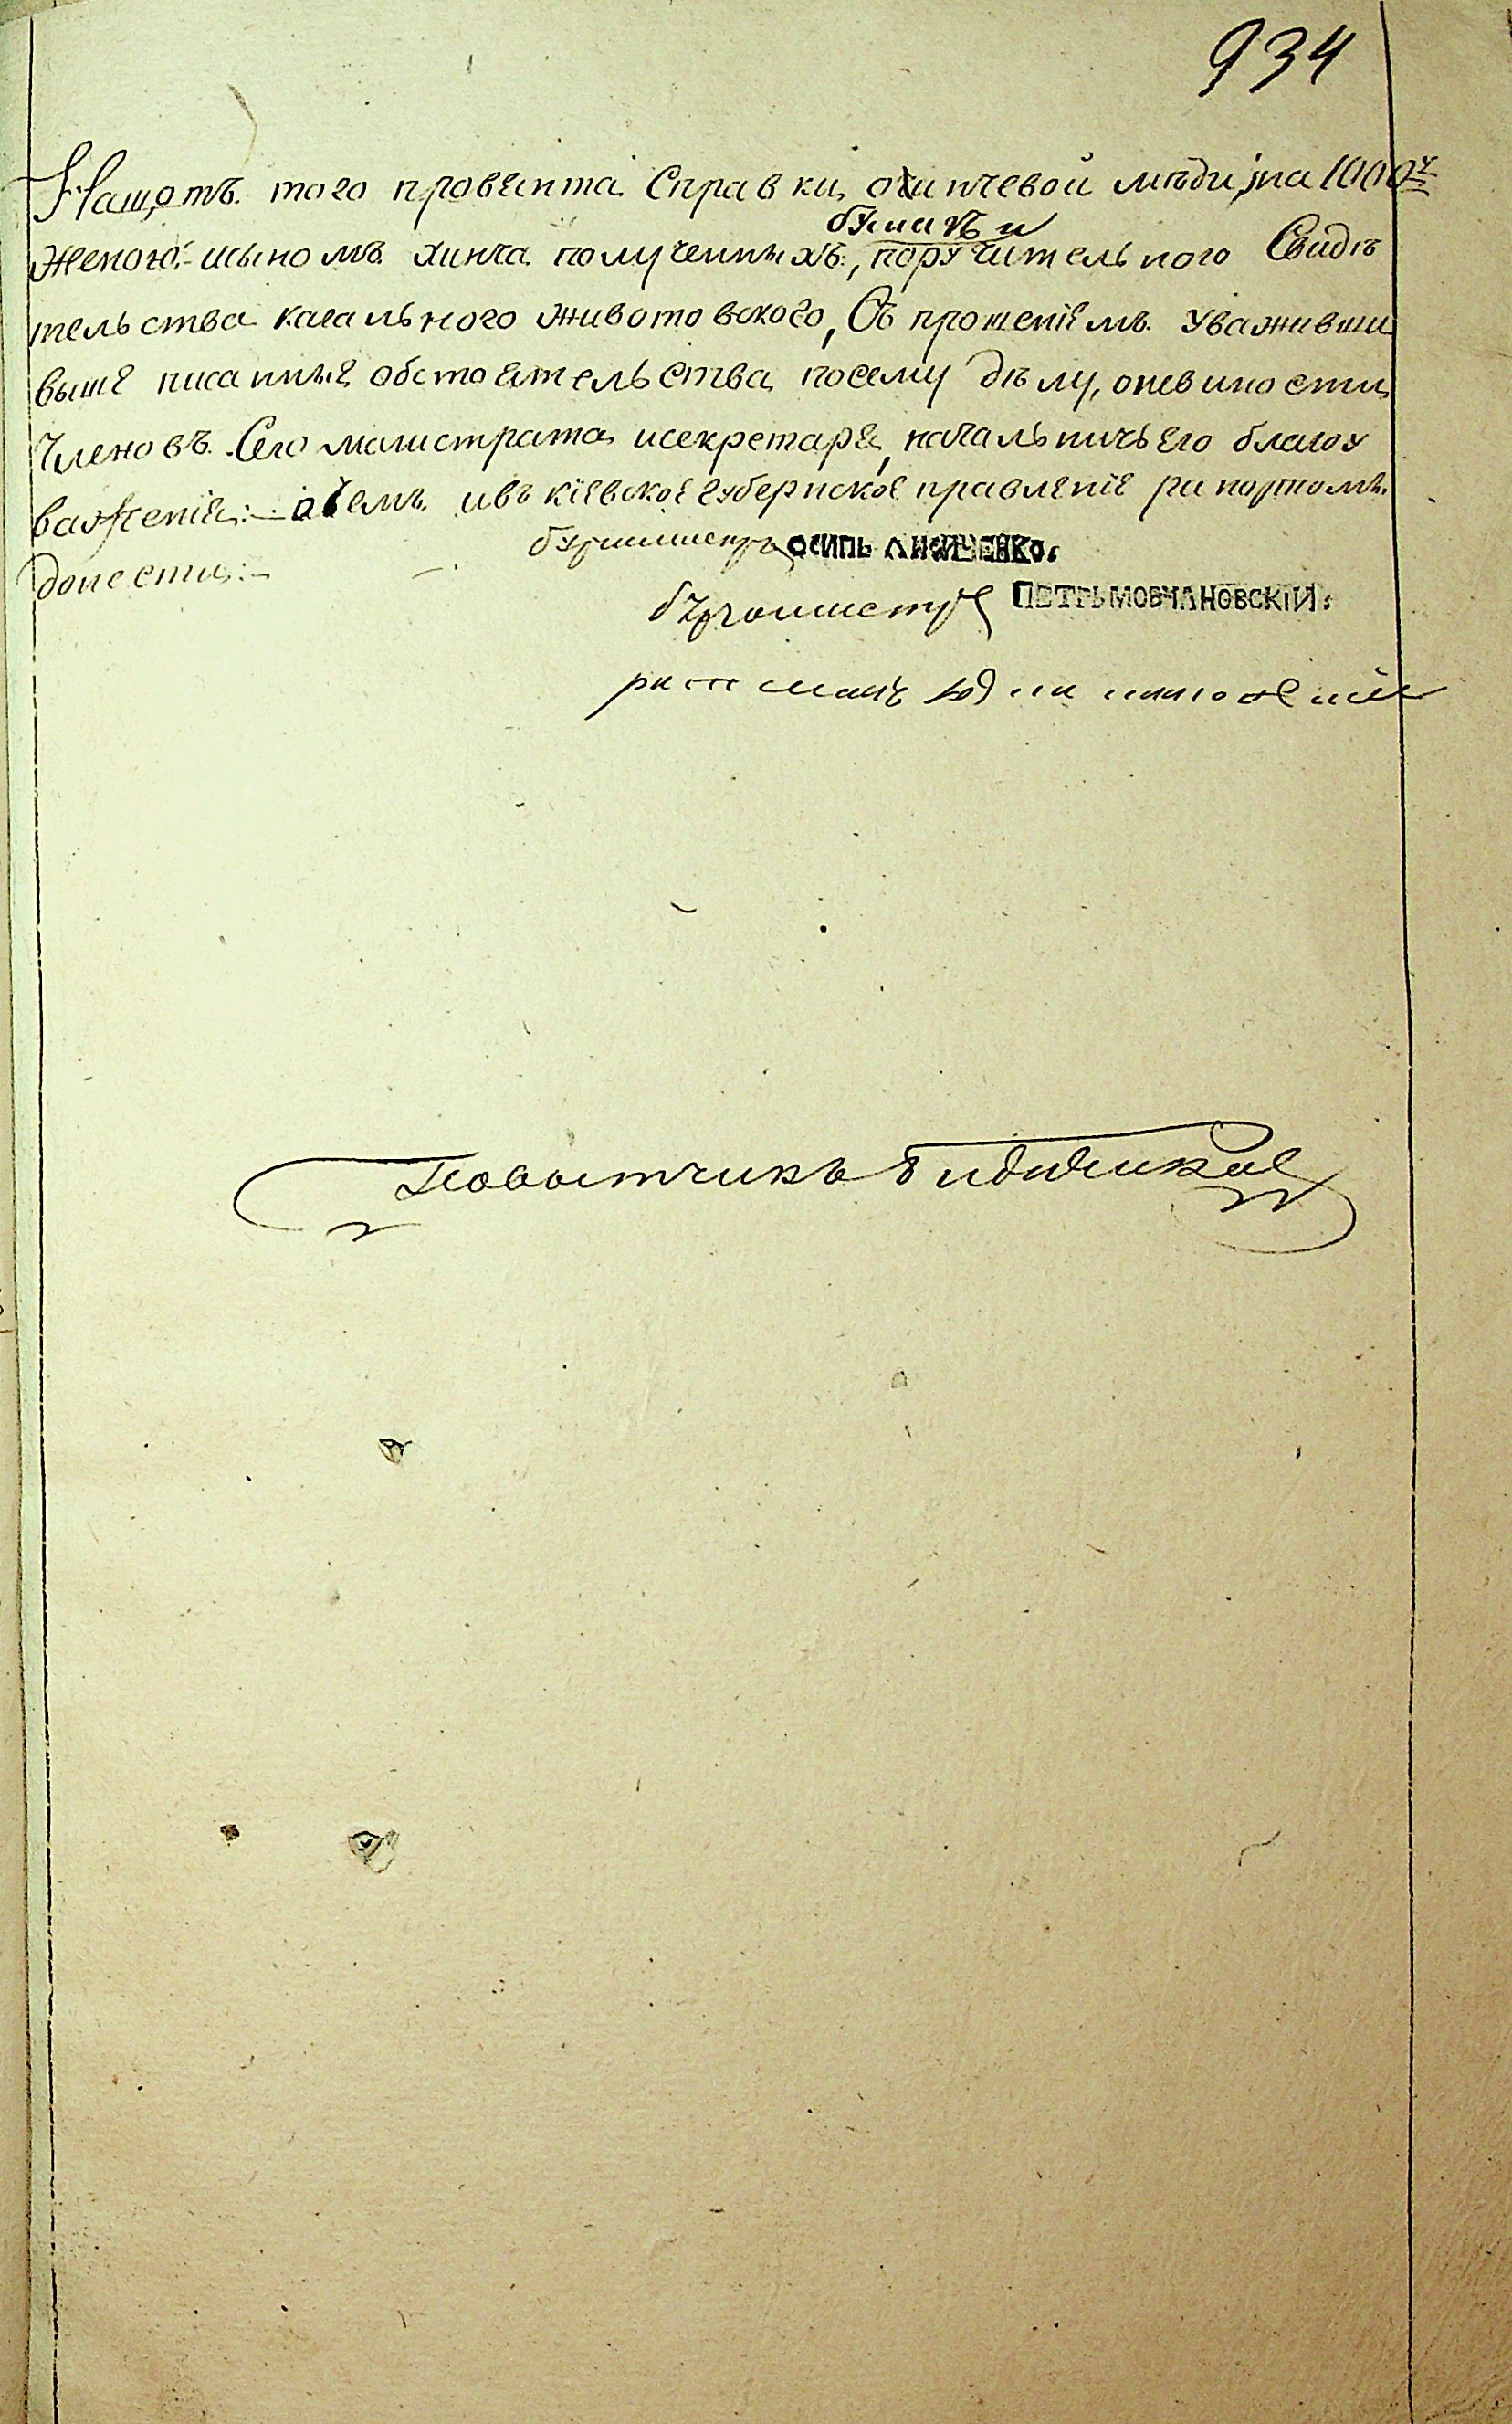 934
Нащотъ того провента Справки, охинчевой меди, на 1000 ч
бумагъ и
женого: исыномъ хинча полученныхъ:, поручительного Свидѣ
тельства кагального животовского, Съ прошеніемъ уваживши
выше писанные обстоятельства посему дѣлу, оневиности
Членовъ Сего магистрата исекретаря, начальничьего благоу
важенія:– очемъ ивъ кіевское губернское правленіе рапортомъ
донести:–
бурмистръ ОСИПЬ ЛИСИЧЕНКО.
бургомистръ ПЕТРЬ МОВЧАНОВСКІЙ.
ратманъ
Повытчикъ